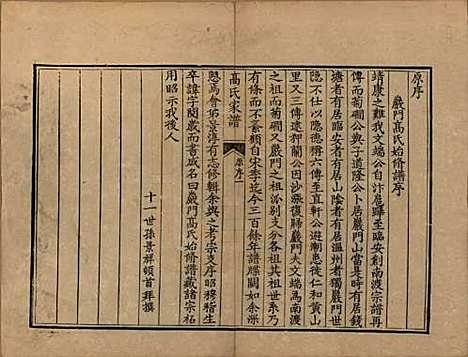 原序
巖門高氏始脩譜序
靖康之難我文端公自汴扈蹕至臨安創南渡宗譜再
傳而菊磵公與子道隆公卜居巖門山當是時有居錢
塘者有居臨安者有居山陰者有居溫州者獨巖門世
隱不仕以隱德稱六傳至直軒公避潮患徙仁和黃山
里又三傳逮槐蘭公因沙漲復歸巖門夫文端為南渡
之祖而菊磵又巖門之祖派別支分各祖其祖世系乃
有條而不紊顧自宋季迄今三百餘年譜牒闕如余深
高氏家譜
原序
一
懲焉會弟景淳有志脩輯余與之考宗支序昭穆稽生
卒諱字閱歲而書成名曰巖門高氏始脩譜藏諸宗祏
用昭示我後人
十一世孫景祥頓首拜撰